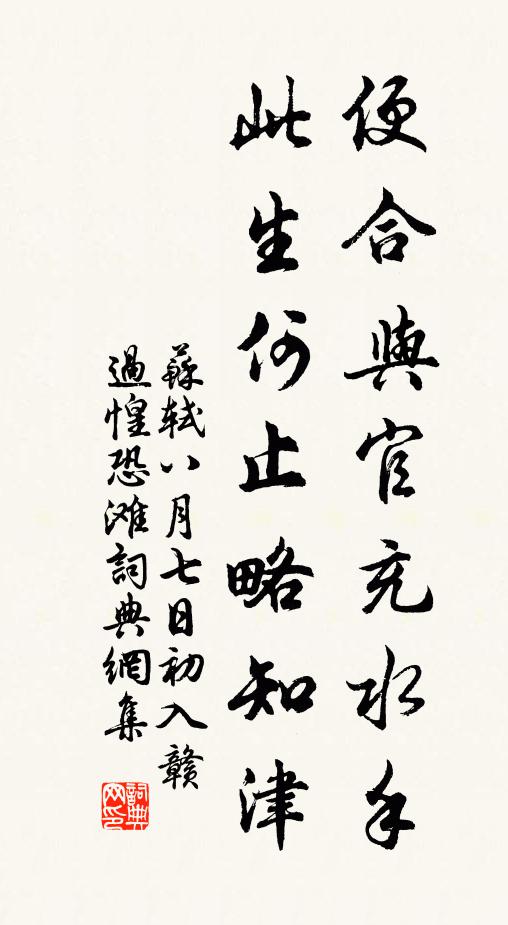 便合與官充水手
此生何止略知津
蘇軾八月七日初入贛
過惶恐滩詞典網集
詞典网印